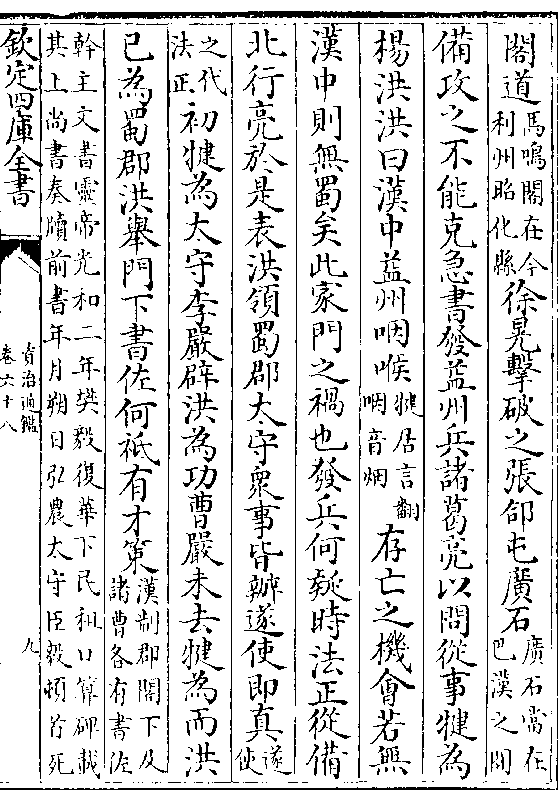 閣道馬鳴閣在今利州昭化縣徐晃擊破之張郃屯廣石廣石當在巴漢之間
備攻之不能克急書發益州兵諸葛亮以問從事犍為
楊洪洪曰漢中益州咽喉犍居言翻咽音烟存亡之機會若無
漢中則無蜀矣此家門之禍也發兵何疑時法正從備
北行亮於是表洪領蜀郡太守衆事皆辦遂使即真遂使
之代法正初犍為太守李嚴辟洪為功曹嚴未去犍為而洪
已為蜀郡洪舉門下書佐何祗有才策漢制郡閣下及諸曹各有書佐
幹主文書靈帝光和二年樊毅復華下民租口算碑載
其上尚書奏牘前書年月朔日弘農太守臣毅頓首死
欽定四庫全書
資治通鑑
卷六十八
九